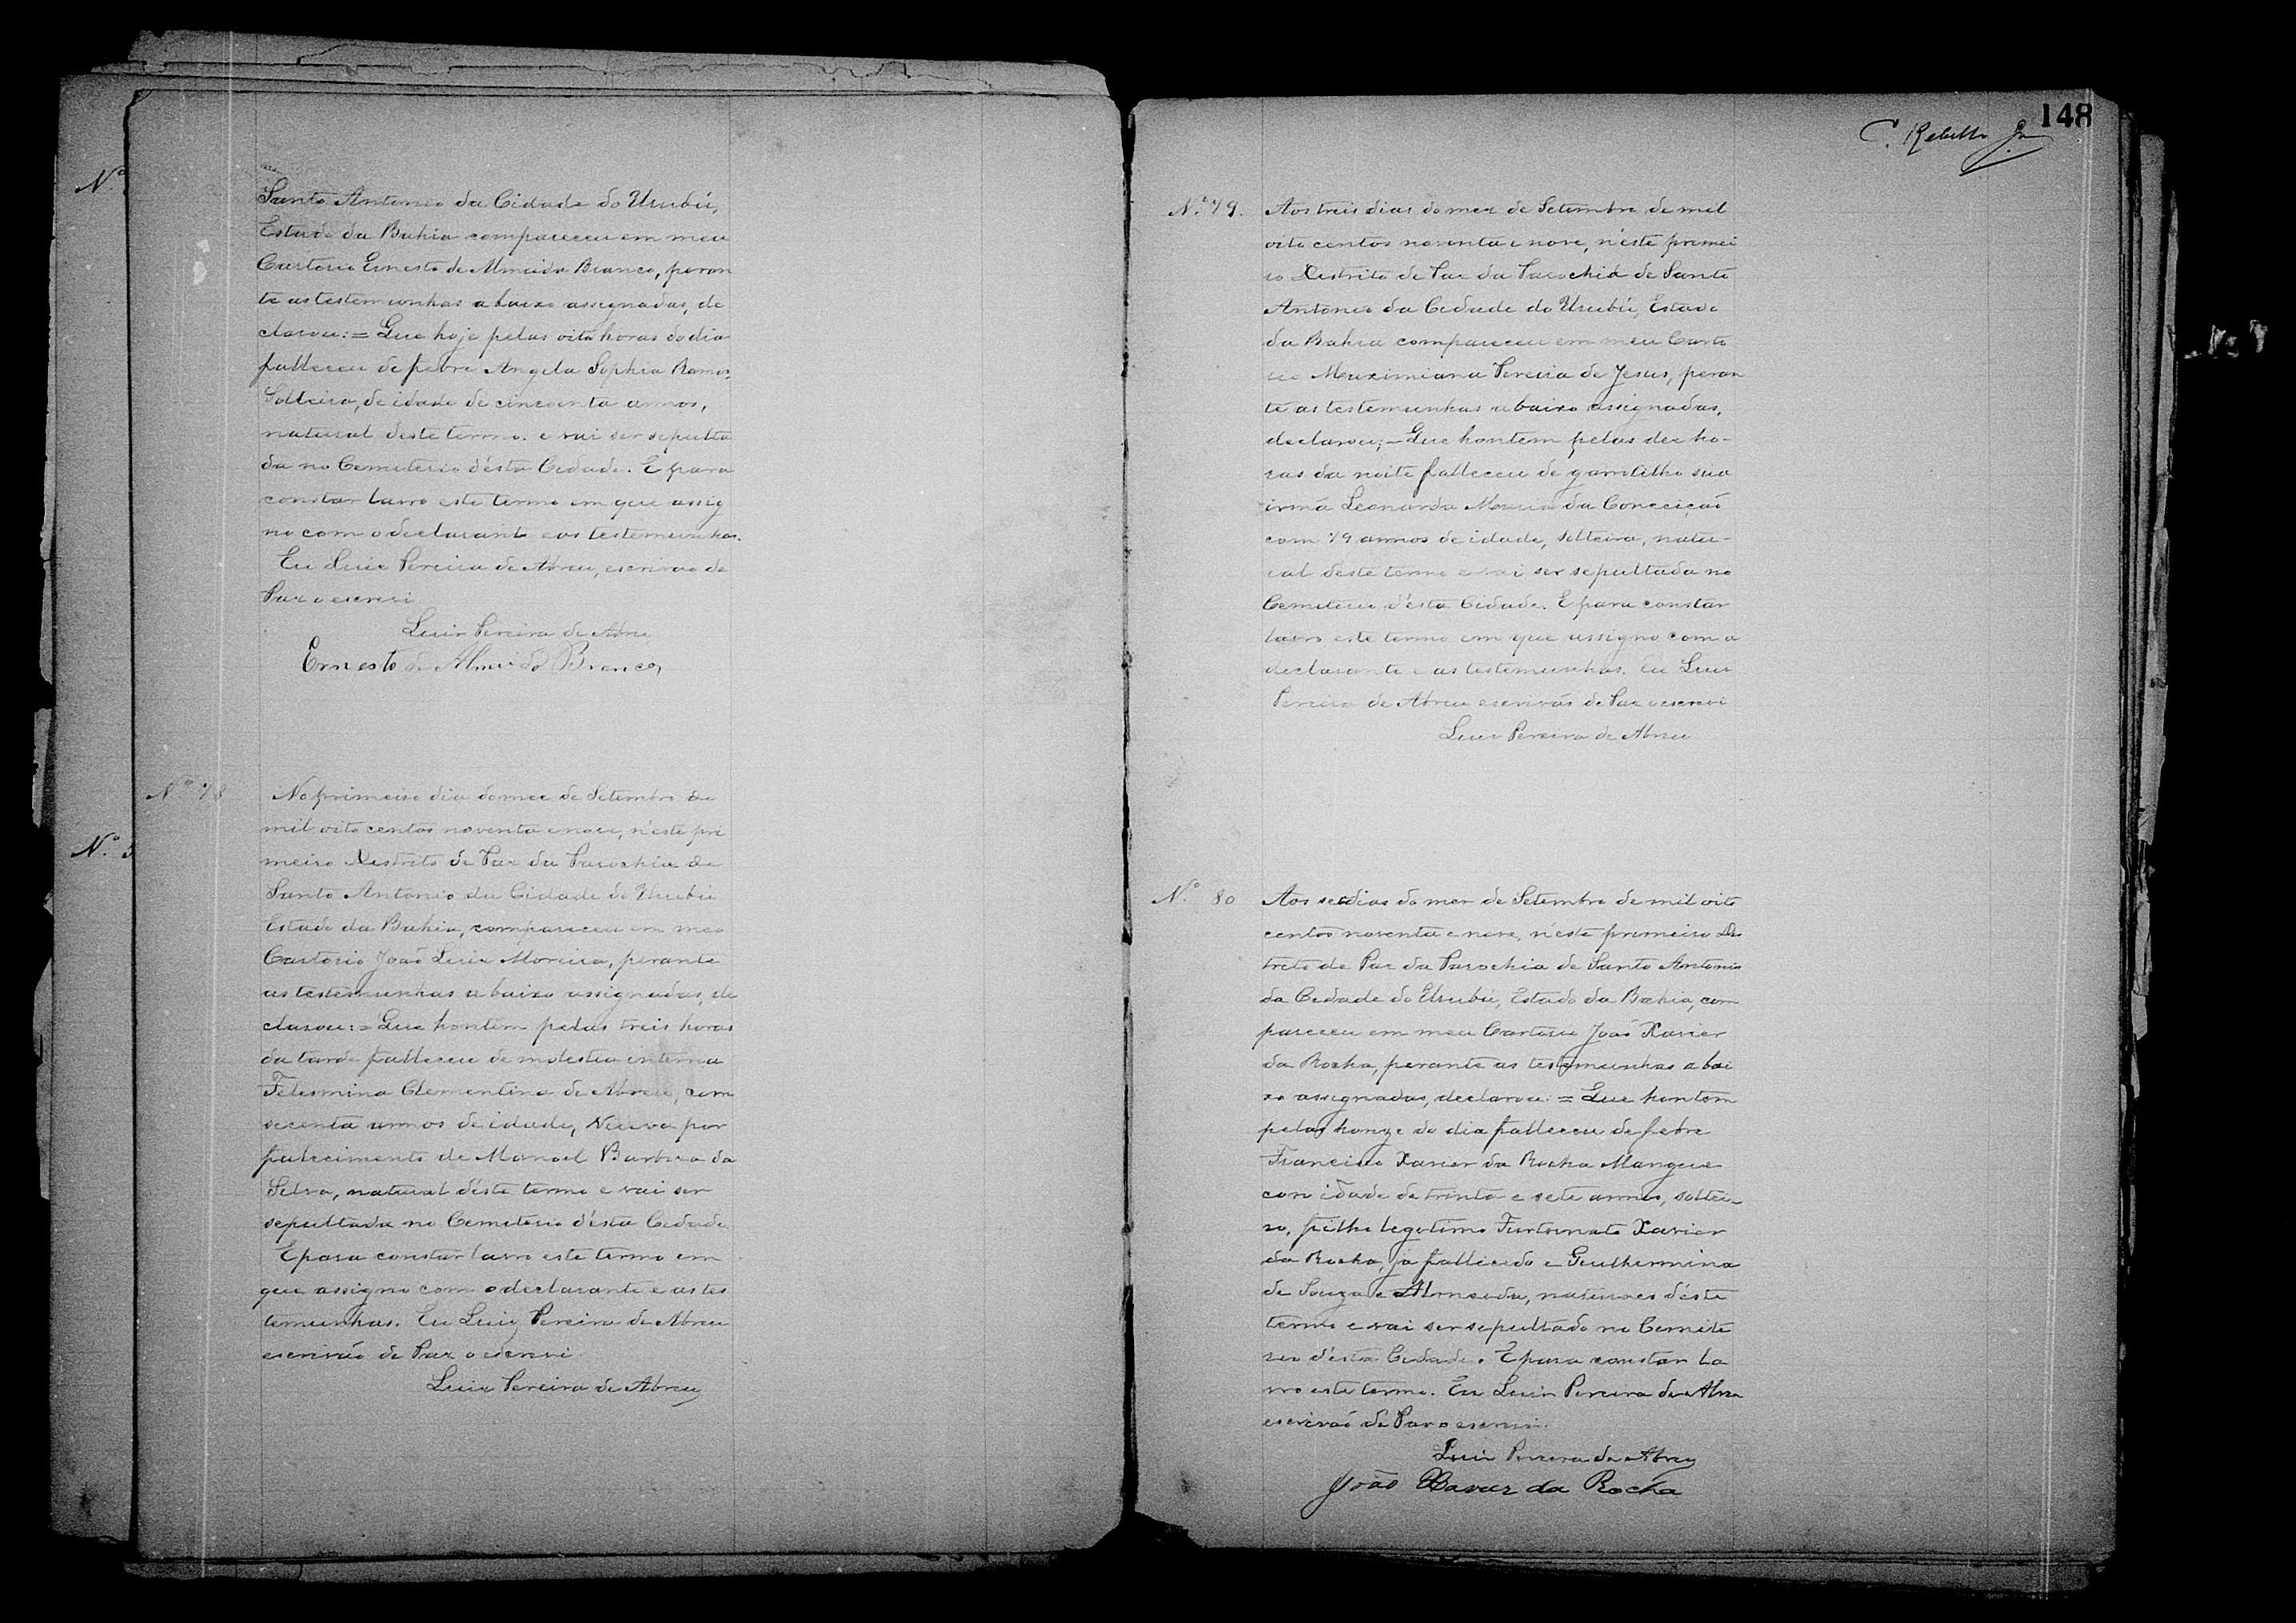 Nº
Santo Antonio da Cidade do Urubú,
Estado da Bahia compareceu em meu
Cartorio Ernesto de Almeida Branco, peran
te as testemunhas abaixo assignadas, de
clarou:= Que hoje pelas oito horas do dia
falleceu de febre Angela Sophia Ramos,
Solteira, de idade de cincoenta annos,
natural deste termo. e vai ser sepulta
da no Cemiterio désta Cidade. E para
constar lavro este termo em que assig
no com o declarante e as testemunhas.
Eu Luiz Pereira de Abreu, escrivão de
Paz o escrevi
Luiz Pereira de Abreu
Ernesto de Almeida Branco,
Nº 78
No primeiro dia do mez de Setembro de
mil oito centos noventa e nove, n'este pri
meiro Destrito de Paz da Parochia de
Santo Antonio da Cidade do Urubú
Estado da Bahia, compareceu em meo
Cartorio João Luiz Moreira, perante
as testemunhas abaixo assignadas, de
clarou:= Que hontem pelas treis horas
da tarde falleceu de molestia interna
Felismina Clementina de Abreu, com
secenta annos de idade, Viuva por
falecimento de Manoel Barboza da
Silva, natural déste termo e vai ser
sepultada no Cemiterio d'ésta Cidade
E para constar lavro este termo em
que assigno com o declarante e as tes
temunhas. Eu Luiz Pereira de Abreu
escrivão de Paz o escrevi
Luiz Pereira de Abreu
148
C. Rebello Jr
N.º 79.
Aos treis dias do mez de Setembro de mil
oito centos noventa e nove, n'éste primei
ro Destrito de Paz da Parochia de Santo
Antonio da Cidade do Urubú, Estado
da Bahia compareceu em meu Carto
rio Maximiana Pereira de Jesus, peran
te as testemunhas abaixo assignadas,
declarou;- Que hontem pelas dez ho-
ras da noite falleceu de garrotilho sua
irmã Leonarda Maria da Conceição
com 19 annos de idade, solteira, natu-
ral deste termo e vai ser sepultada no
Cemiterio d'ésta Cidade. E para constar
lavro este termo em que assigno com a
declarante e as testemunhas. Eu Luiz
Pereira de Abreu escrivão de Paz o escrevi
Luiz Pereira de Abreu
N.º 80
Aos dias do mez de Setembro de mil oito
centos noventa e nove, n'este primeiro Des
treto de Paz da Parochia de Santo Antonio
da Cidade do Urubú, Estado da Bahia, com
pareceu em meu Cartorio João Xavier
da Rocha, perante as testemunhas abai
xo assignadas, declarou:= Que hontem
pelas honze do dia falleceu de febre
Francisco Xavier da Rocha Mangue
com idade de trinta e sete annos, soltei-
ro, filho legetimo Furtunato Xavier
da Rocha, já fallicido e Guilhermina
de Souza e Almeida, naturaes déste
termo e vai ser sepultado no Cemite
rio d'ésta Cidade. E para constar la
vro este termo. Eu Luiz Pereira de Abreu
escrivão de Paz o escrevi.
Luiz Pereira de Abreu
João Xavier da Rocha